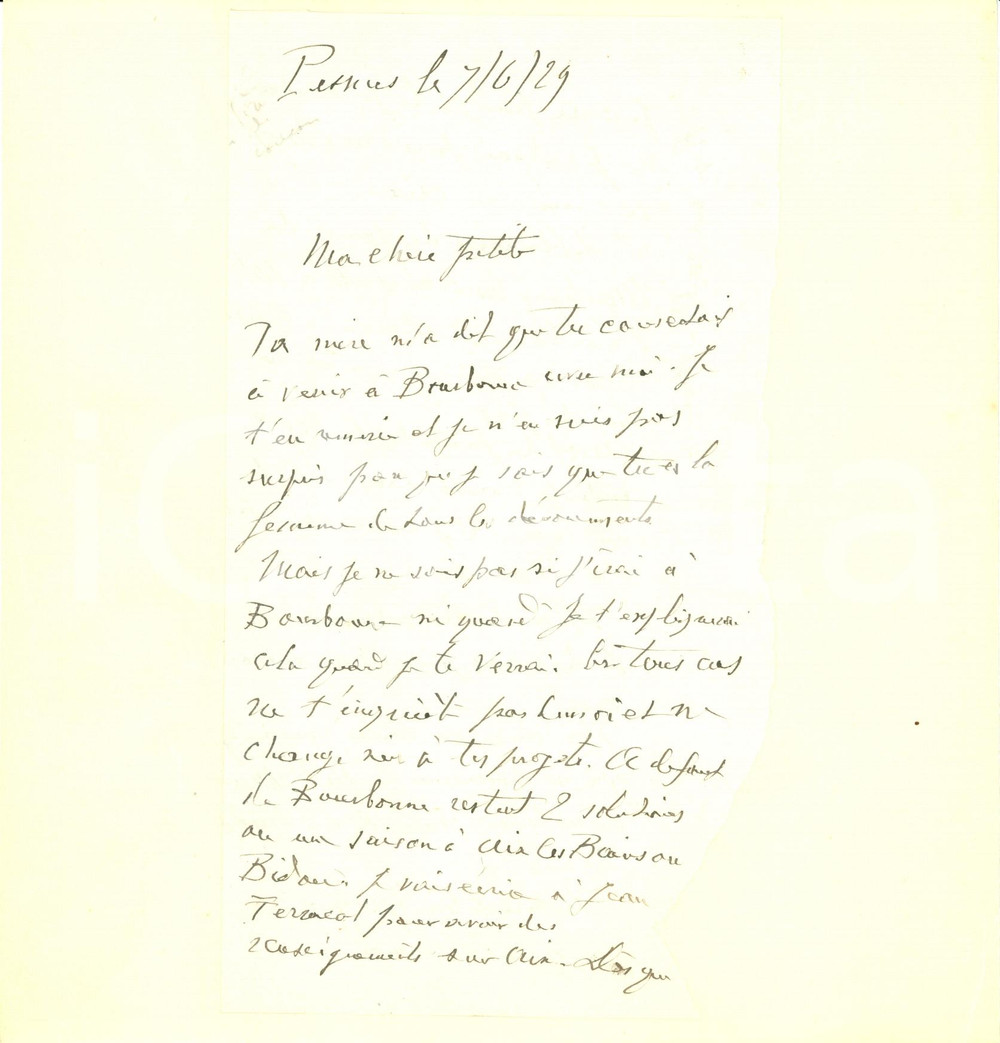 Pesmes le 7/6/29
Ma chère petite
Ta mère m'a dit que tu consentais
à venir à Bourbonne avec moi. Je
t'en remercie et je n'en suis pas
surpris parce que je sais que tu es la
femme de tous les dévouements
Mais je ne sais pas si j'irai à
Bourbonne ni quand je t'expliquerai
cela quand je te verrai. En tous cas
ne t'inquiète pas et ne
change rien à tes projets. A défaut
de Bourbonne restent 2 solutions
ou une saison à Aix les Bains ou
je vais écrire à Jean
pour avoir des
renseignements sur Aix. Dès que